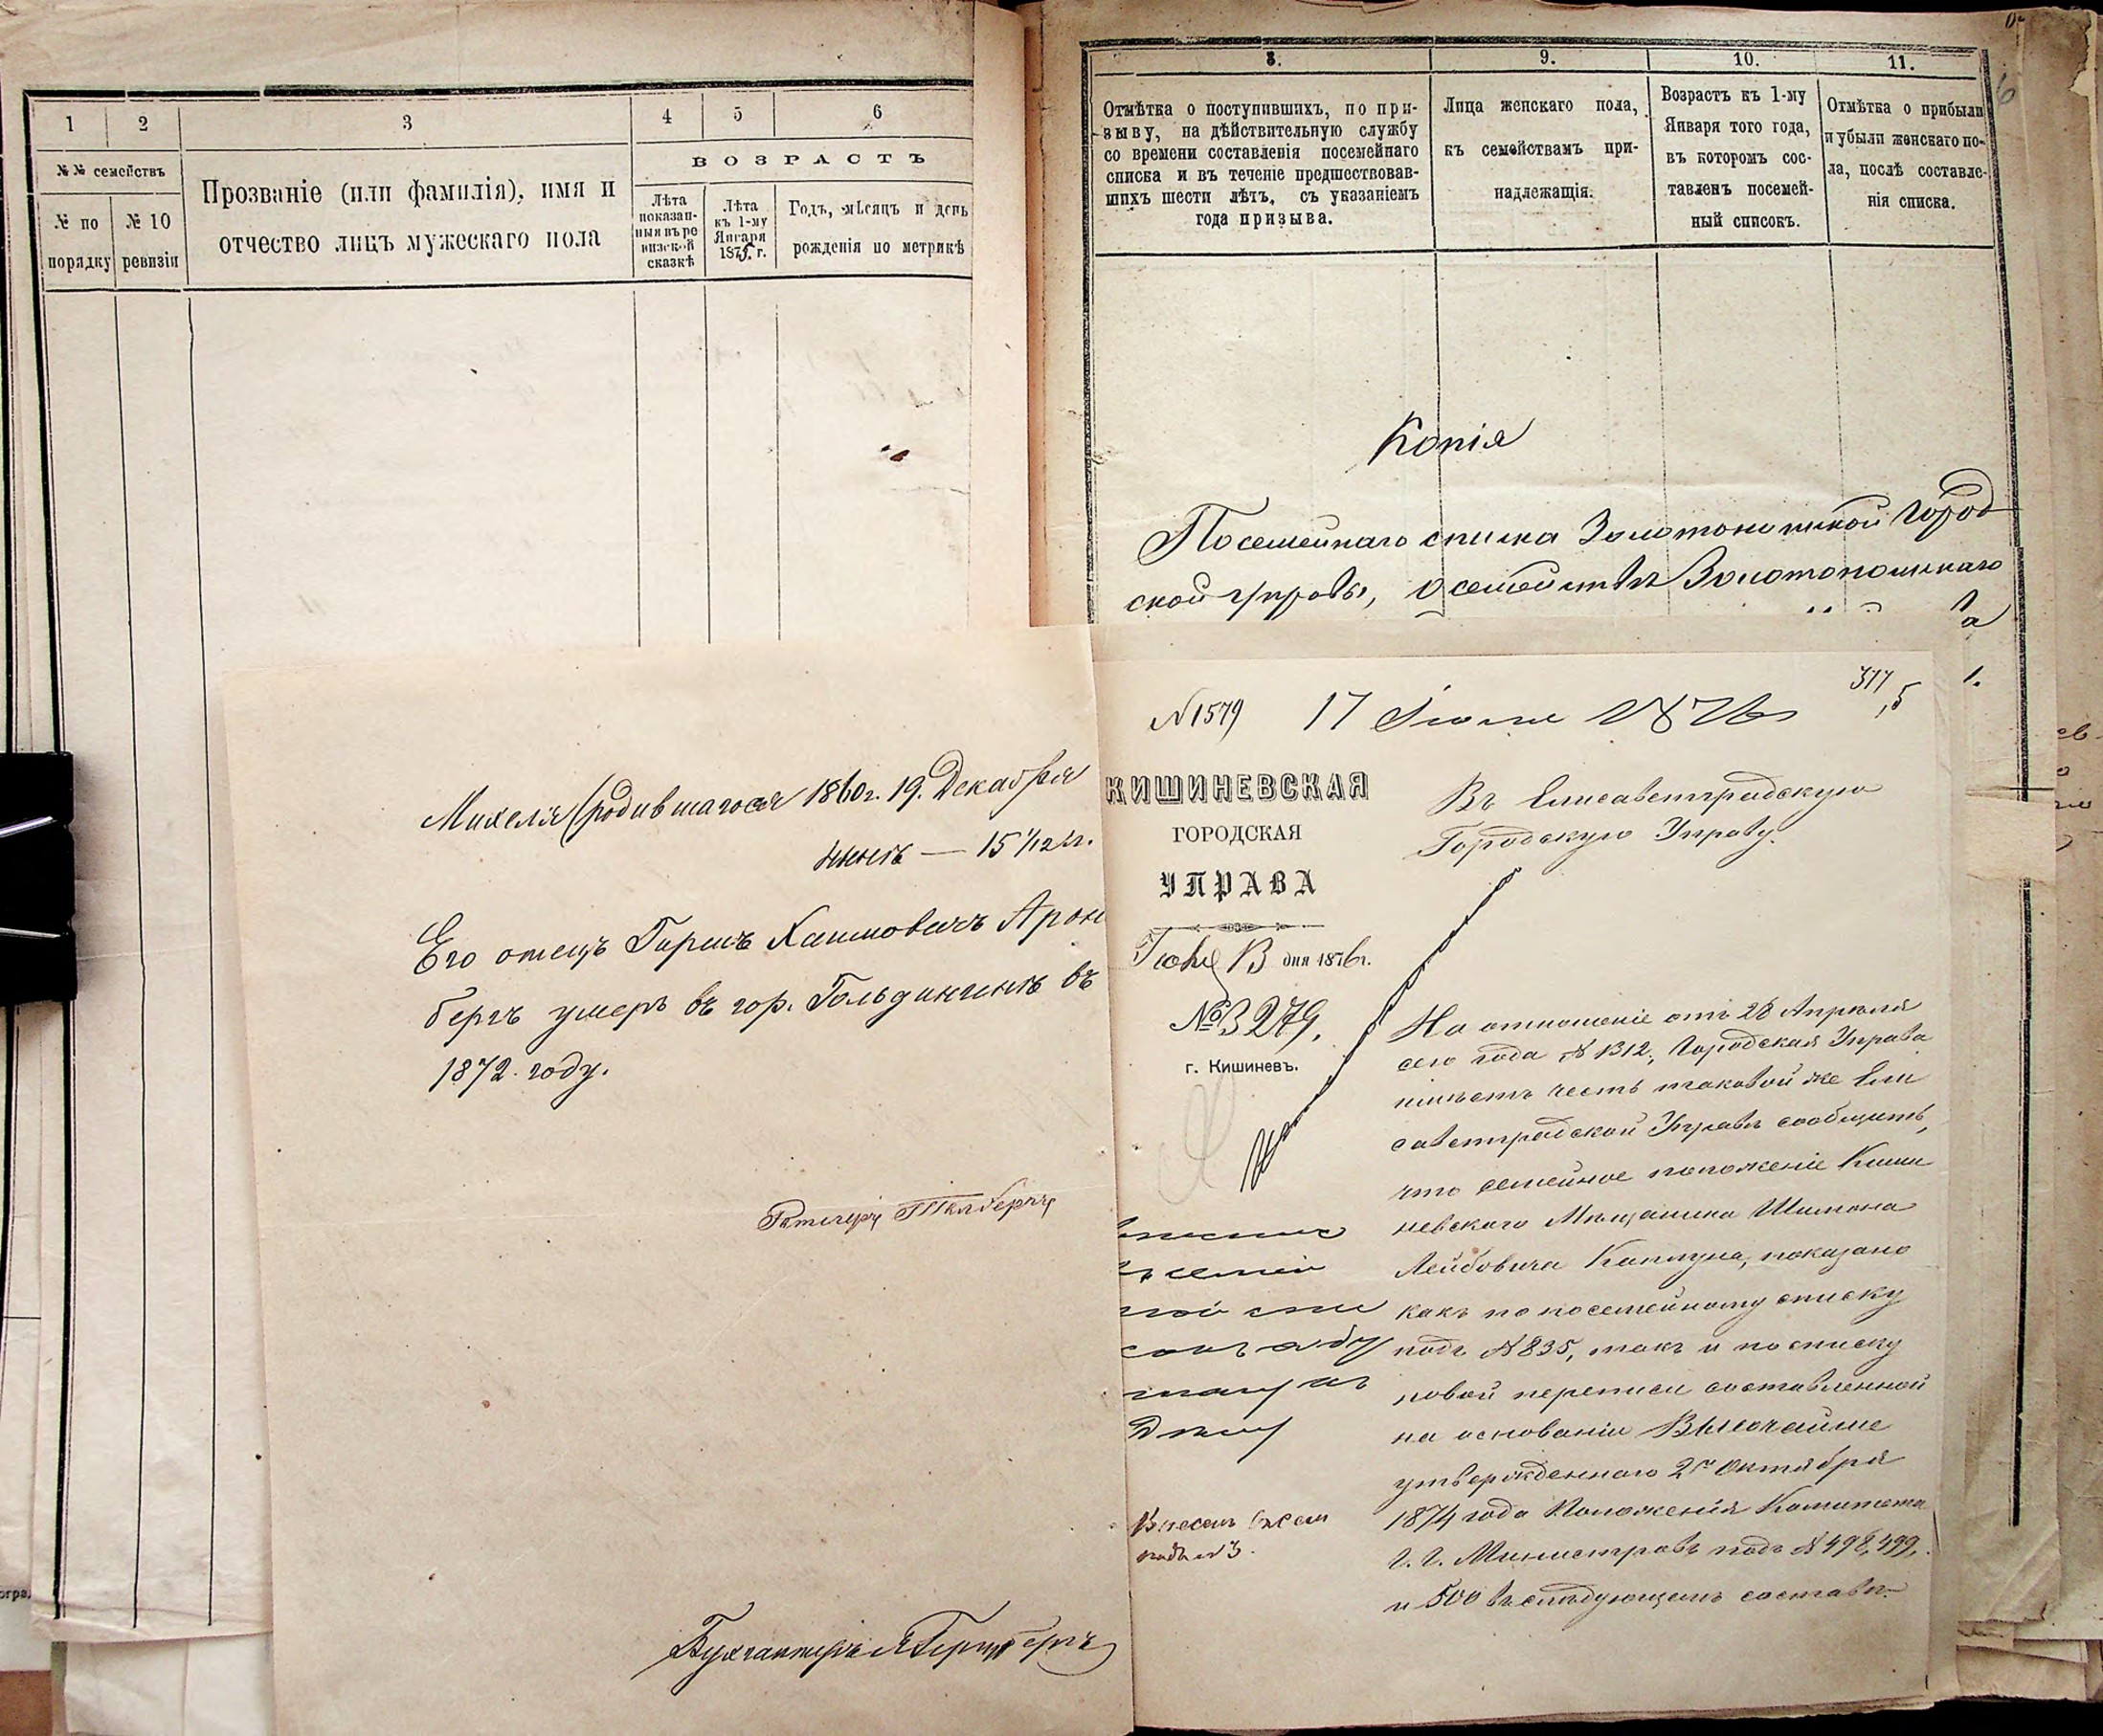 1
2
3
4
5
6
№№ семействъ
№ по порядку
№ 10 ревизіи
Прозваніе (или фамилія), имя и
отчество лицъ мужескаго пола
ВОЗРАСТЪ
Лѣта
показан-
ныя въ ре
визской
сказкѣ
Лѣта
къ 1-му
Января
1875. г.
Годъ, мѣсяцъ и день
рожденія по метрикѣ
8.
9.
10.
11.
Отмѣтка о поступившихъ, по при-
зыву, на дѣйствительную службу
со времени составленія посемейнаго
списка и въ теченіе предшествовав-
шихъ шести лѣтъ, съ указаніемъ
года призыва.
Лица женскаго пола,
къ семействамъ при-
надлежащія.
Возрастъ къ 1-му
Января того года,
въ которомъ сос-
тавленъ посемей-
ный списокъ.
Отмѣтка о прибыли
и убыли женскаго по-
ла, послѣ составле-
нія списка.
Копія
Посемейнаго списка Золотоношской Город
ской управы, о семействѣ Золотоношскаго
Михеля (родившагося 1860 г. 19. Декабря
нынѣ — 15 1/12 г.
Его отецъ Гиршъ Хаимовичъ Арон
бергъ умеръ въ гор. Гольдингенѣ въ
1872. году.
Бухгалтеръ
N 1579 17 Іюня 1876
377
5
КИШИНЕВСКАЯ
ГОРОДСКАЯ
УПРАВА
13 дня 1876 г.
№ 3279.
г. Кишиневъ.
Въ Елисаветградскую
Городскую Управу.
На отношеніе отъ 28 Апрѣля
сего года N 1312, Городская Управа
имѣетъ честь таковой же Ели
саветградской Управѣ сообщить,
что семейное положеніе Киши
невскаго Мѣщанина Шимона
Лейбовича Каплуна, показано
какъ по посемейному списку
подъ N 835, такъ и по списку
новой переписи составленной
на основаніи Высочайше
утвержденнаго 2го Октября
1874 года Положенія Комитета
Г. Г. Министровъ подъ N 498, 499,
и 500 въ слѣдующемъ составѣ: